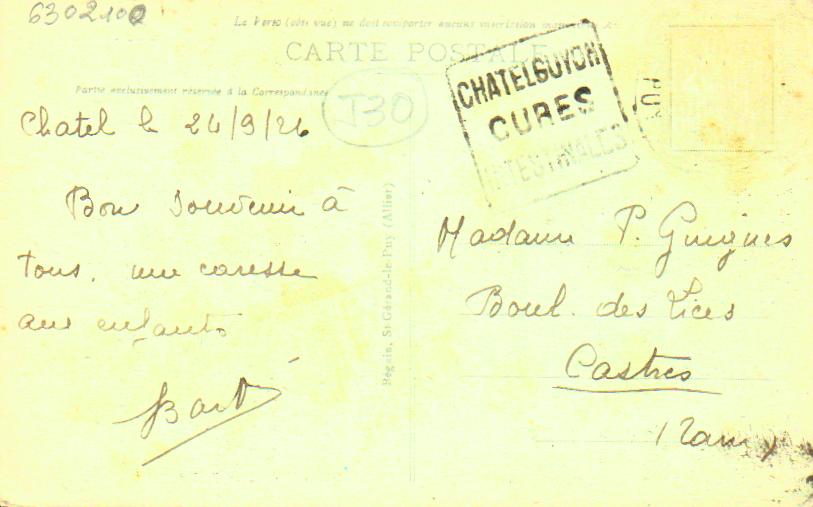 6302100
Le Verso (côté vue) ne doit comporter aucune inscription
CARTE POSTALE
Partie exclusivement réservée à la Correspondance
J30
CHATELGUYON
CURES
INTESTINALES
PUY
Chatel le 24/9/26
Bon souvenir à
tous, une caresse
aux enfants
Madame P. Guignes
Boul. des Lices
Castres
(Tarn)
Béguin, St-Gérand-le-Puy (Allier)